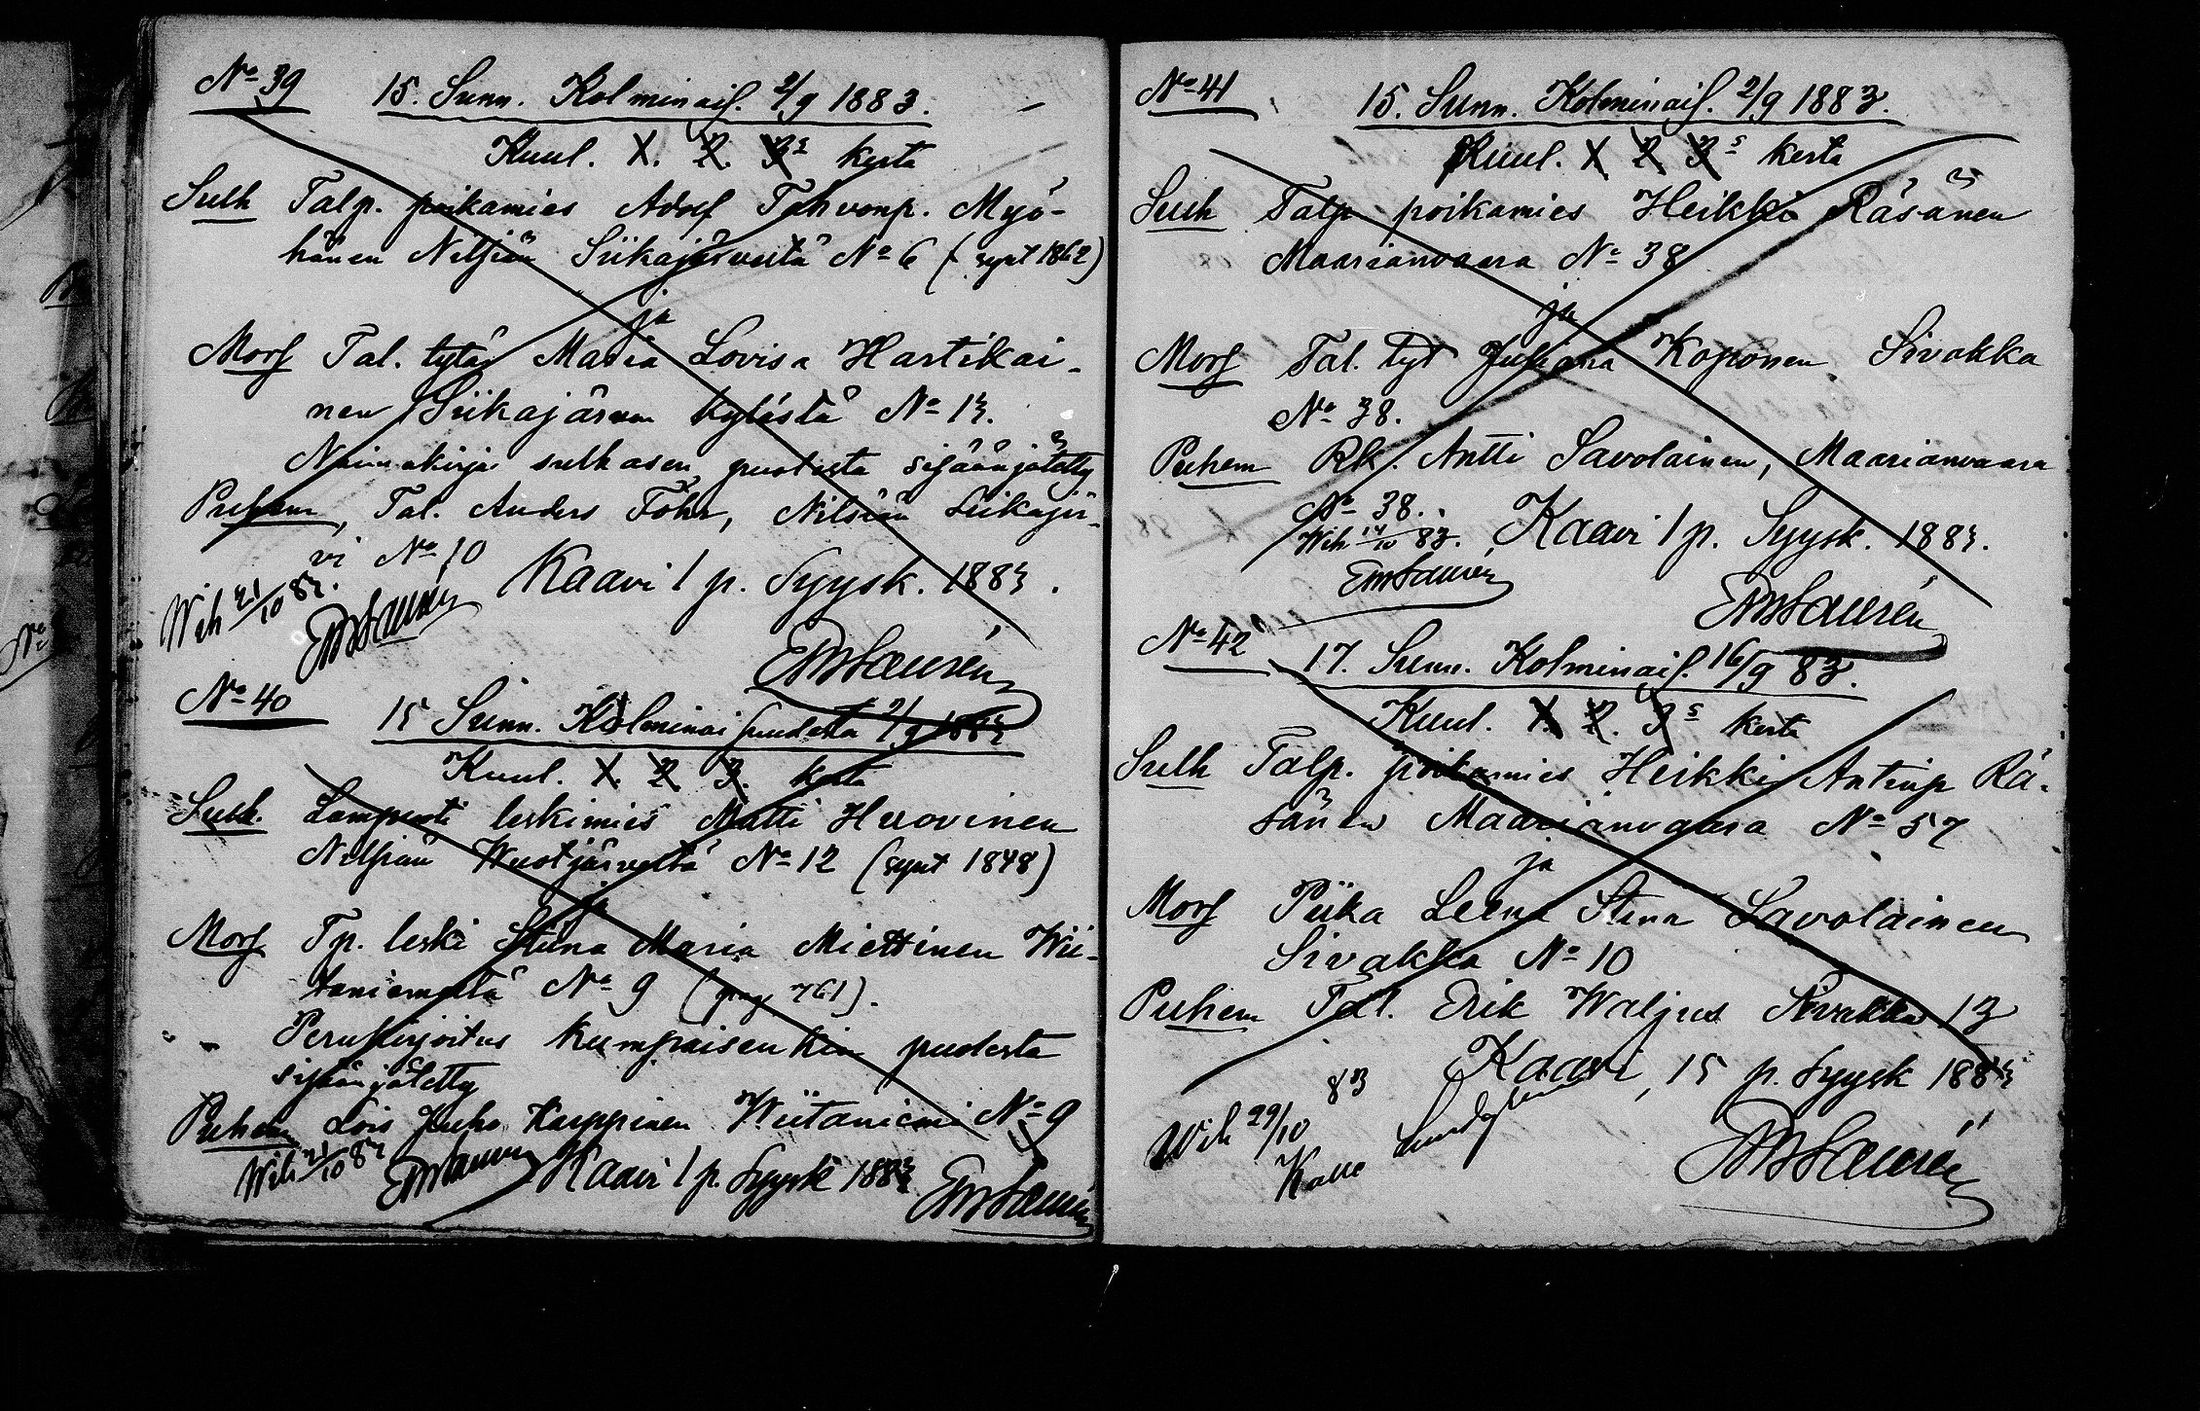 No 39
15. Sunn. Kolminais. 2/9 1883.
Kuul. 1. 2. 3s kerta
Sulh Talp. poikamies Adolf Tahvonp. Myö-
hänen Nilsiän Siikajärveltä No 6 (synt 1862)
ja
Mors Tal. tytär Maria Lovisa Hartikai-
nen Siikajärven kylästä No 13.
Naimakirja sulhasen puolesta sisäänjätetty
Puhem, Tal. Anders Föhr, Nilsiän Siikajär-
vi No 10
Kaavi 1 p. Syysk. 1883.
Wih 21/10 83.
No 40
15 Sunn. Kolminaisuudesta 2/9 1883
Kuul. 1. 2 3. kerta
Sulh. Lampuoti leskimies Matti Huovinen
Nilsiän Wuotjärveltä No 12 (synt 1848)
ja
Mors Tp. leski Stiina Maria Miettinen Wii-
taniemeltä No 9 (pag 761).
Perukirjoitus kumpaisenkin puolesta
sisäänjätetty
Puhem Lois Juho Karppinen Wiitaniemi No 9
Wih 21/10 83
Kaavi 1 p. Syysk 1883
No 41
15. Sunn. Kolminais. 2/9 1883.
Kuul. 1 2 3s kerta
Sulh Talp poikamies Heikki Räsänen
Maarianvaara No 38
ja
Mors Tal. tyt Juliana Koponen Sivakka
No 38.
Puhem Rk. Antti Savolainen, Maarianvaara
No 38.
Wih 14/10 83. Kaavi 1 p. Syysk. 1883.
No 42
17. Sunn. Kolminais. 16/9 83.
Kuul. 1. 2. 3s kerta
Sulh Talp. poikamies Heikki Antinp Rä-
sänen Maarianvaara No 57
ja
Mors Piika Leena Stina Savolainen
Sivakka No 10
Puhem Tal. Erik Waljus Sivakka 13
Kaavi, 15 p. Syysk 1883
Wih 29/10 83